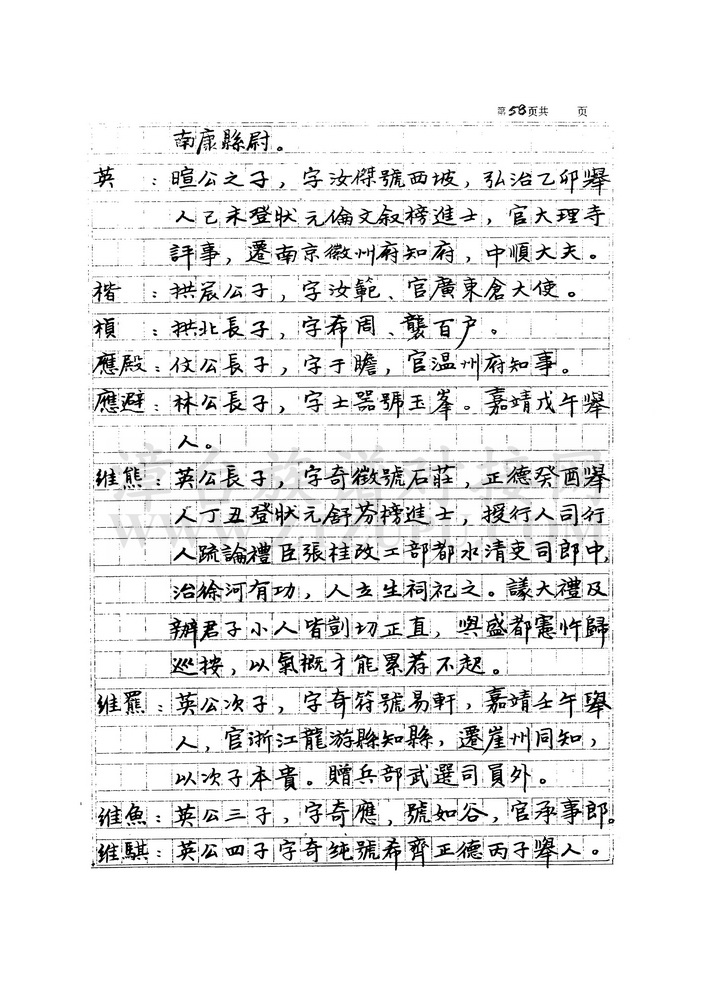 第58页共 页
南康縣尉。
英 ：暄公之子，字汝傑號西坡，弘治乙卯舉
人己未登狀元倫文叙榜進士，官大理寺
評事，遷南京徽州府知府，中順大夫。
楷 ：拱宸公子，字汝範、官廣東倉大使。
楨 ：拱北長子，字希周、襲百户。
應殿：伩公長子，字于瞻，官温州府知事。
應避：林公長子，字士器號玉峯。嘉靖戊午舉
人。
维熊：英公長子，字奇徵號石莊，正德癸酉舉
人丁丑登狀元舒芬榜進士，授行人司行
人疏論禮臣張桂改工部都水清吏司郎中，
治徐河有功，人立生祠祀之。議大禮及
辦君子小人皆剴切正直，與盛都憲忤歸
巡按，以氣概才能累荐不起。
维羆：英公次子，字奇符號易軒，嘉靖壬午舉
人，官浙江龍游縣知縣，遷崖州同知，
以次子本貴。贈兵部武選司員外。
维魚：英公三子，字奇應，號如谷，官承事郎。
维騏：英公四子字奇纯號希齊正德丙子舉人。
漳台族谱对接网